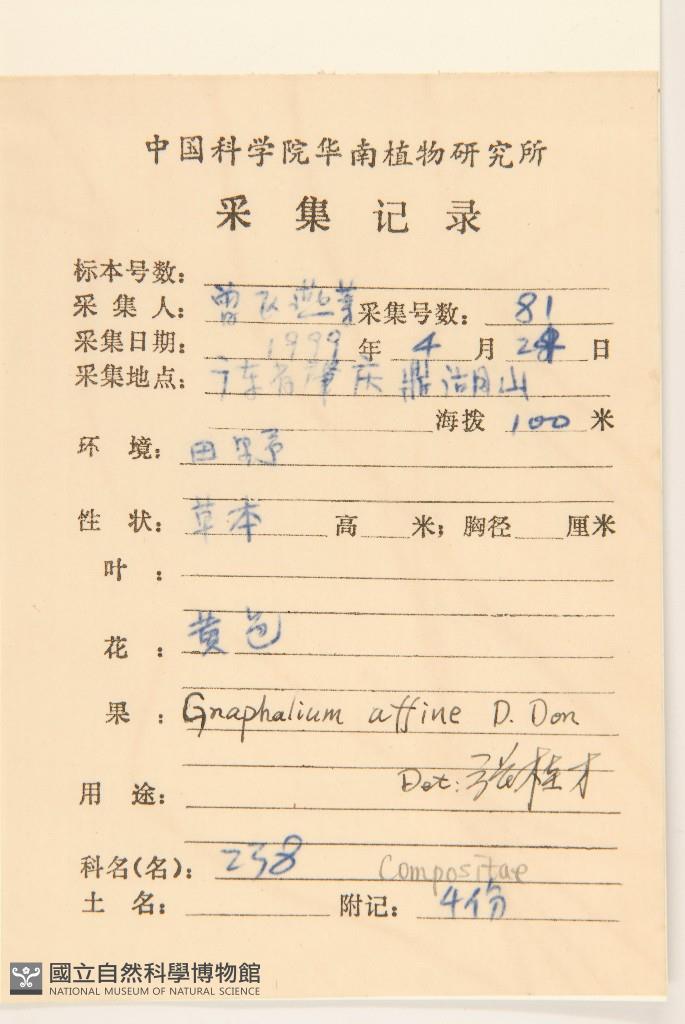 中国科学院华南植物研究所
采集记录
标本号数：
采集人：曾飞燕等 采集号数：81
采集日期：1999年4月24日
采集地点：广东省肇庆鼎湖山
海拨100米
环境：田野
性状：草本 高 米；胸径 厘米
叶：
花：黄色
果：Gnaphalium affine D. Don
Det: 张桂才
用途：
科名(名)：238 Compositae
土名： 附记：4份
國立自然科學博物館
NATIONAL MUSEUM OF NATURAL SCIENCE